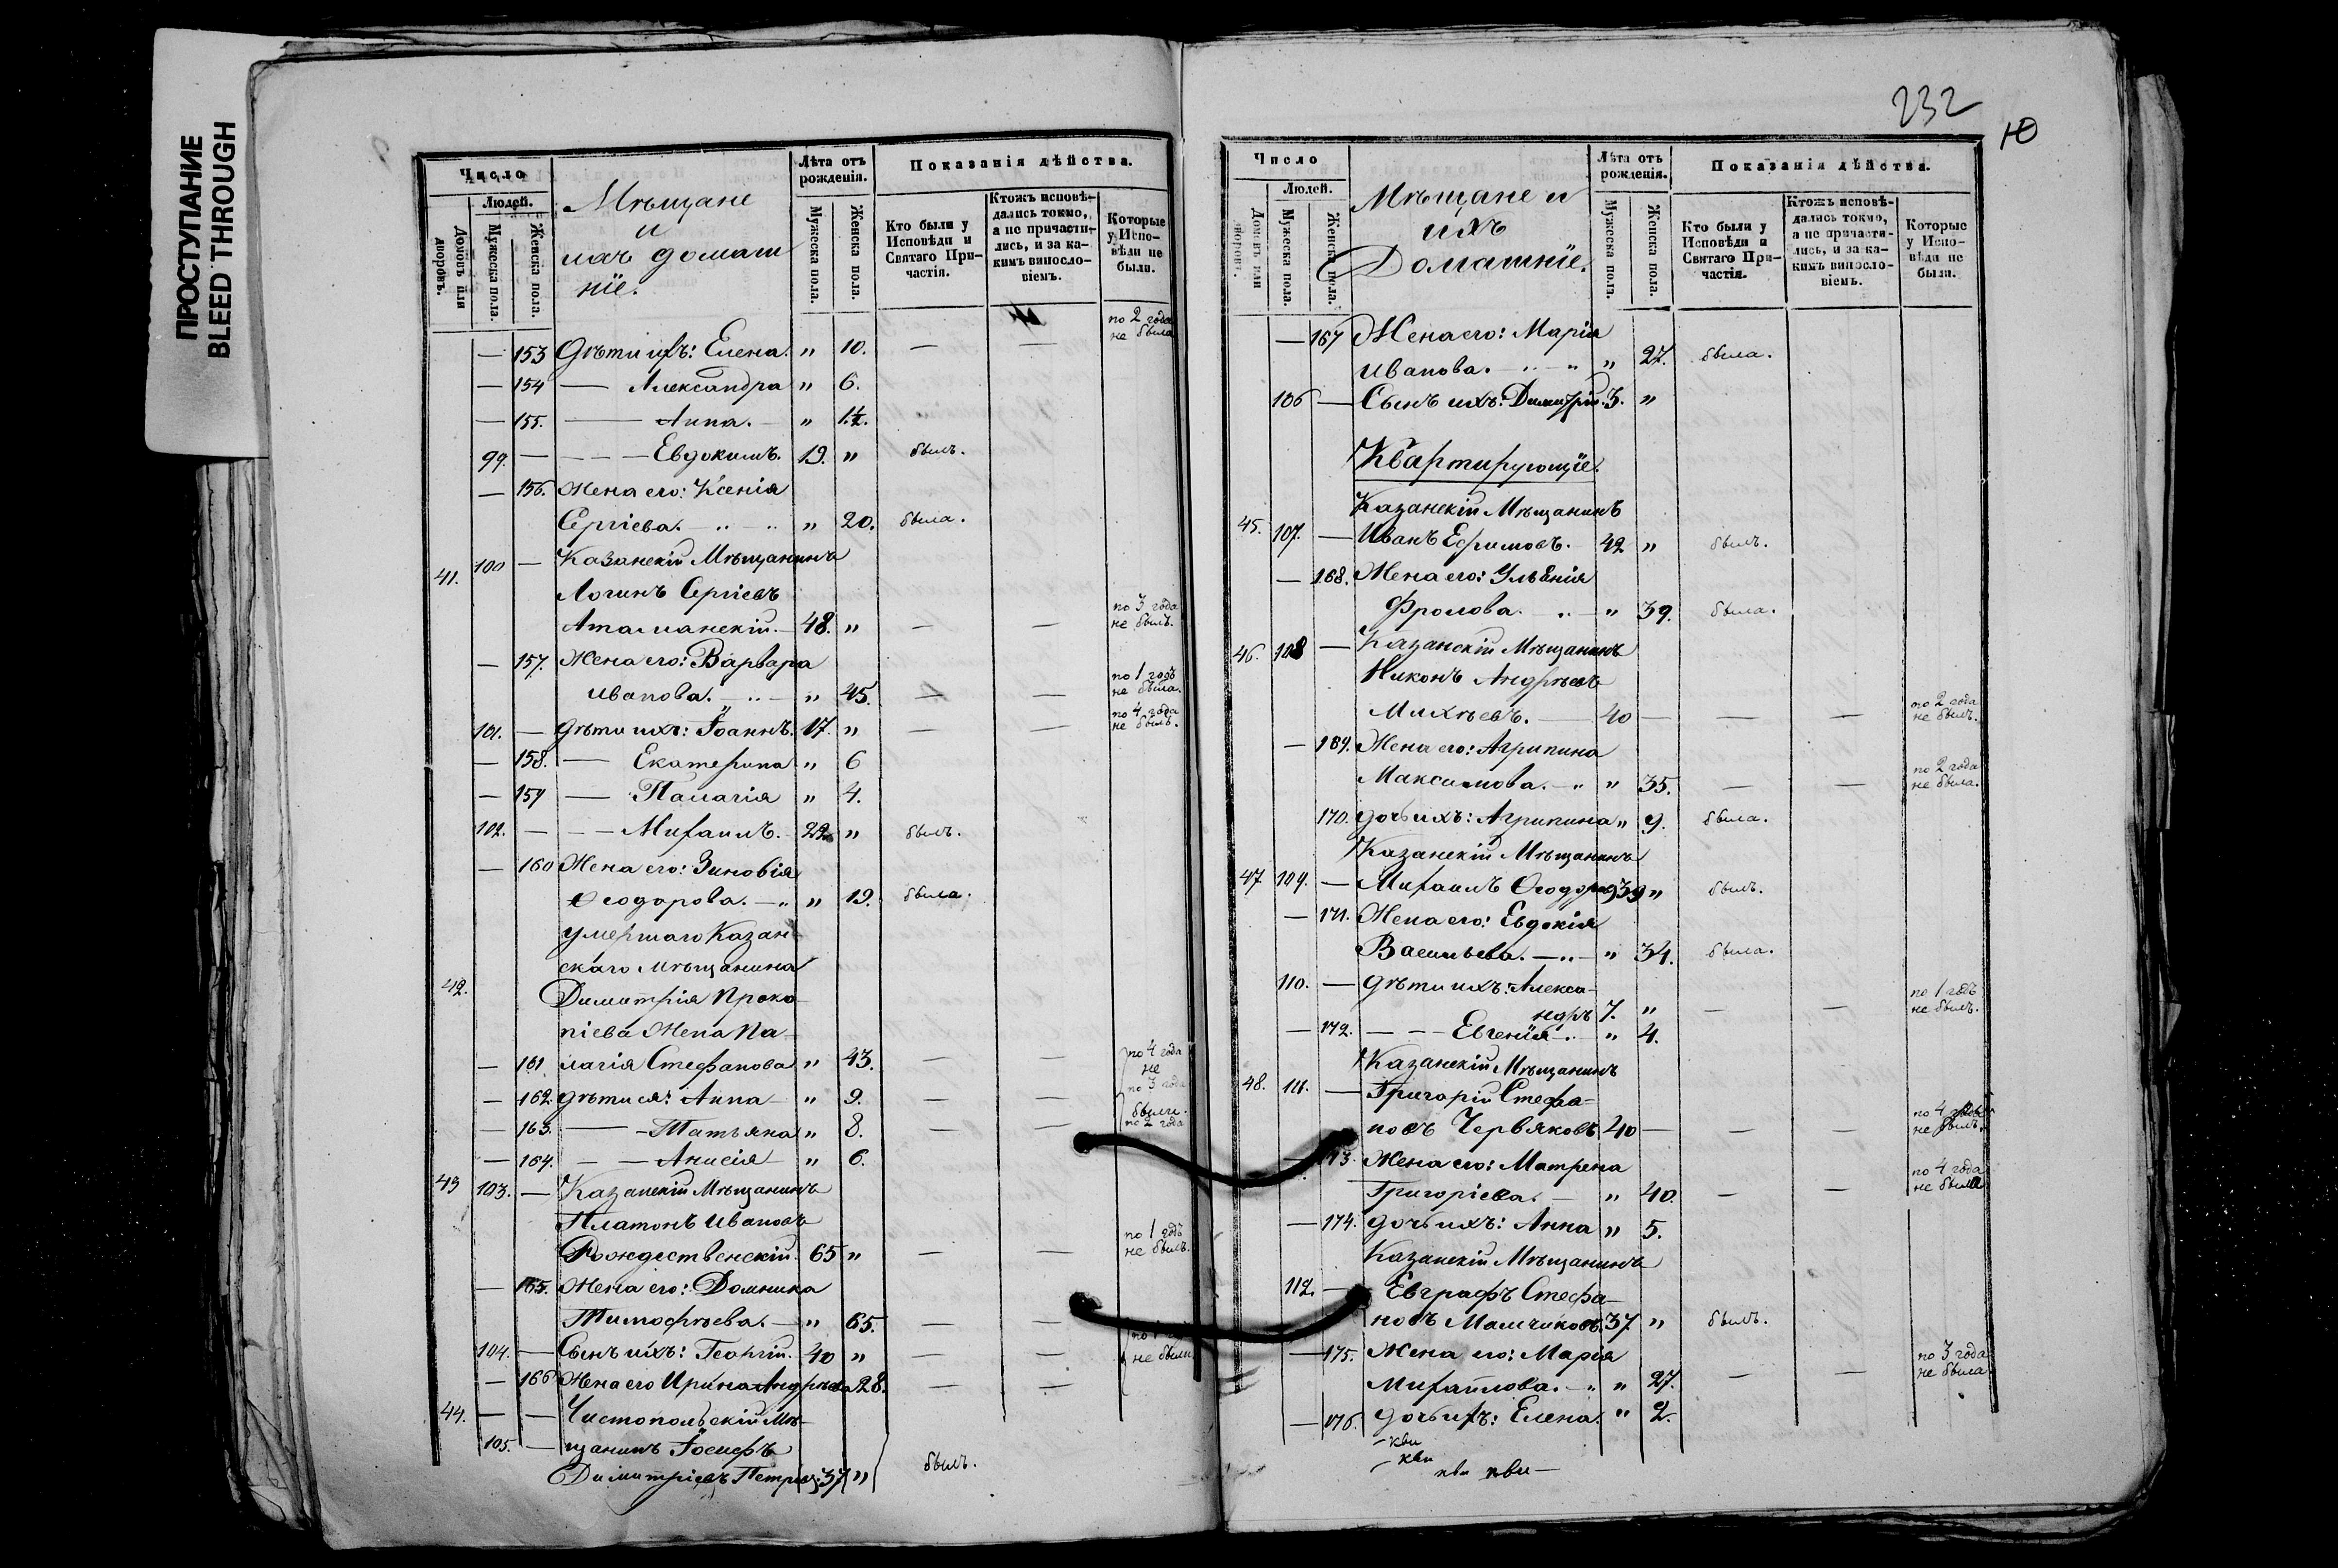 ПРОСТУПАНИЕ
BLEED THROUGH
Число
Людей.
Домовъ или дворовъ.
Мужеска пола.
Женска пола.
Мѣщане
и
ихъ домаш
нїе.
Лѣта отъ рожденія.
Мужеска пола.
Женска пола.
Показанія дѣйства.
Кто были у Исповѣди и Святаго Причастія.
Ктожъ исповѣдались токмо, а не причастились, и за какимъ винословіемъ.
Которые у Исповѣди не были.
— 153 Дѣти ихъ: Елена. " 10. — — по 2 года не была
— 154 — Александра " 6.
— 155. — Анна. — " 1½.
99. — — — — Евдокимъ. 19. " былъ.
— 156. Жена его: Ксенія
Сергіева. — " 20. была.
41. 100 — Казанскій Мѣщанинъ
Логинъ Сергіевъ
Атаманскій. — 48. " — — по 3 года не былъ.
— 157. Жена его: Варвара
Иванова. — " 45. — — по 1 годъ не была.
101. — Дѣти ихъ: Іоаннъ. 17. " — — по 4 года не былъ.
— 158. — Екатерина " 6
— 159 — Палагія " 4.
102. — — — Михаилъ. 22 " былъ.
— 160 Жена его: Зиновія
Ѳеодорова. — " 19. была.
умершаго Казан-
скаго мѣщанина
42. Димитрія Проко-
піева Жена Па-
— 161 лагія Стефанова " 43. — — по 4 года не
— 162. Дѣти ея: Анна — " 9. — — по 3 года
— 163. — Татьяна " 8. — — были. по 2 года
— 164. — — Анисія " 6.
43 103. — Казанскій Мѣщанинъ
Платонъ Ивановъ
Рождественскій. 65 " — — по 1 годъ не былъ.
— 165. Жена его: Домника
Тимофѣева. — " 65. — —
104. — Сынъ ихъ: Георгій. 40 " — — не были
— 166 Жена его Ирина Андрѣева 28. — —
44. — — Чистопольскій Мѣ-
105. — щанинъ Іосифъ
Димитріевъ Петровъ 37 " былъ.
232
Ю
Число
Людей.
Домовъ или дворовъ.
Мужеска пола.
Женска пола.
Мѣщане и
ихъ
Домашніе.
Лѣта отъ рожденія.
Мужеска пола.
Женска пола.
Показанія дѣйства.
Кто были у Исповѣди и Святаго Причастія.
Ктожъ исповѣдались токмо, а не причастились, и за какимъ винословіемъ.
Которые у Исповѣди не были.
— 167 Жена его: Марія
Иванова. — " 27. была.
106 — Сынъ ихъ: Димитрій. 3. "
Квартирующіе.
Казанскій Мѣщанинъ
45. 107. — Иванъ Ефимовъ. 42 " былъ.
— 168. Жена его: Ульянія
Фролова. " 39. была.
46. 108 — Казанскій Мѣщанинъ
Никонъ Андрѣевъ
Михѣевъ. — 40 — — — по 2 года не былъ.
— 169. Жена его: Агрипина
Максимова. — " 35. — — по 2 года не была.
170. дочь ихъ: Агрипина " 9. была.
Казанскій Мѣщанинъ
47 109. — Михаилъ Ѳеодоровъ 39 " былъ.
— 171. Жена его: Евдокія
Васильева. — " 34. была.
110. — Дѣти ихъ: Алекса-
ндръ 7. " — — по 1 годъ не былъ.
— 172. — — Евгенія. " 4.
Казанскій Мѣщанинъ
48. 111. — Григорій Стефа-
новъ Червяковъ 40 — — — по 4 года не былъ.
— 173. Жена его: Матрена
Григоріева. — " 40. — — по 4 года не была
— 174. дочь ихъ: Анна " 5.
Казанскій Мѣщанинъ
112. — Евграфъ Стефа-
новъ Мамчиковъ. 37 " былъ.
— 175. Жена его: Марія
Михаилова. — " 27. — — по 3 года не была
— 176. дочь ихъ: Елена. " 2.